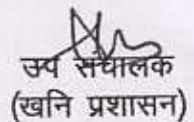 उप संचालक
(खनि प्रशासन)